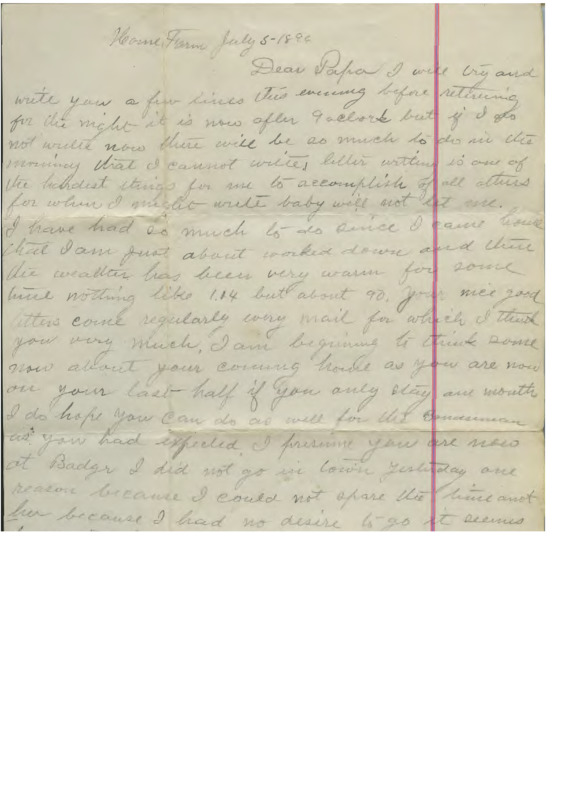 Home Farm July 5-189
Dear Papa I will try and
write you a few lines this evening before retiring
for the night it is now after 9 oclock but if I do
not write now there will be so much to do in the
morning that I cannot write, letter writing is one of
the hardest things for me to accomplish of all others
for when I might write baby will not let me.
I have had so much to do since I came home
that I am just about worked down and then
the weather has been very warm for some
time nothing like 114 but about 90. Your nice good
letters come regularly every mail for which I thank
you very much, I am beginning to think some
now about your coming home as you are now
on your last half if you only stay one month
I do hope you can do as well for the
as you had expected I presume you are now
at Badgr I did not go in town yesterday one
reason because I could not spare the time and
because I had no desire to go it seems